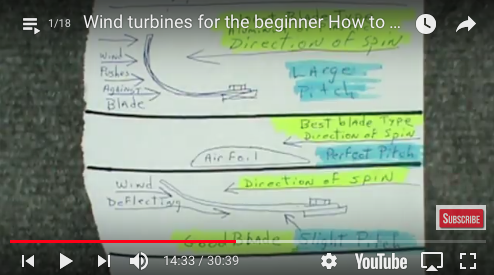 1/18 Wind turbines for the beginner How to ...
Best Blade Type
Direction of Spin
Wind
Pushes
Against
Blade
Large
Pitch
Best blade Type
Direction of Spin
Air Foil
Perfect Pitch
Wind
Deflecting
Direction of Spin
Good Blade Slight Pitch
SUBSCRIBE
14:33 / 30:39
YouTube